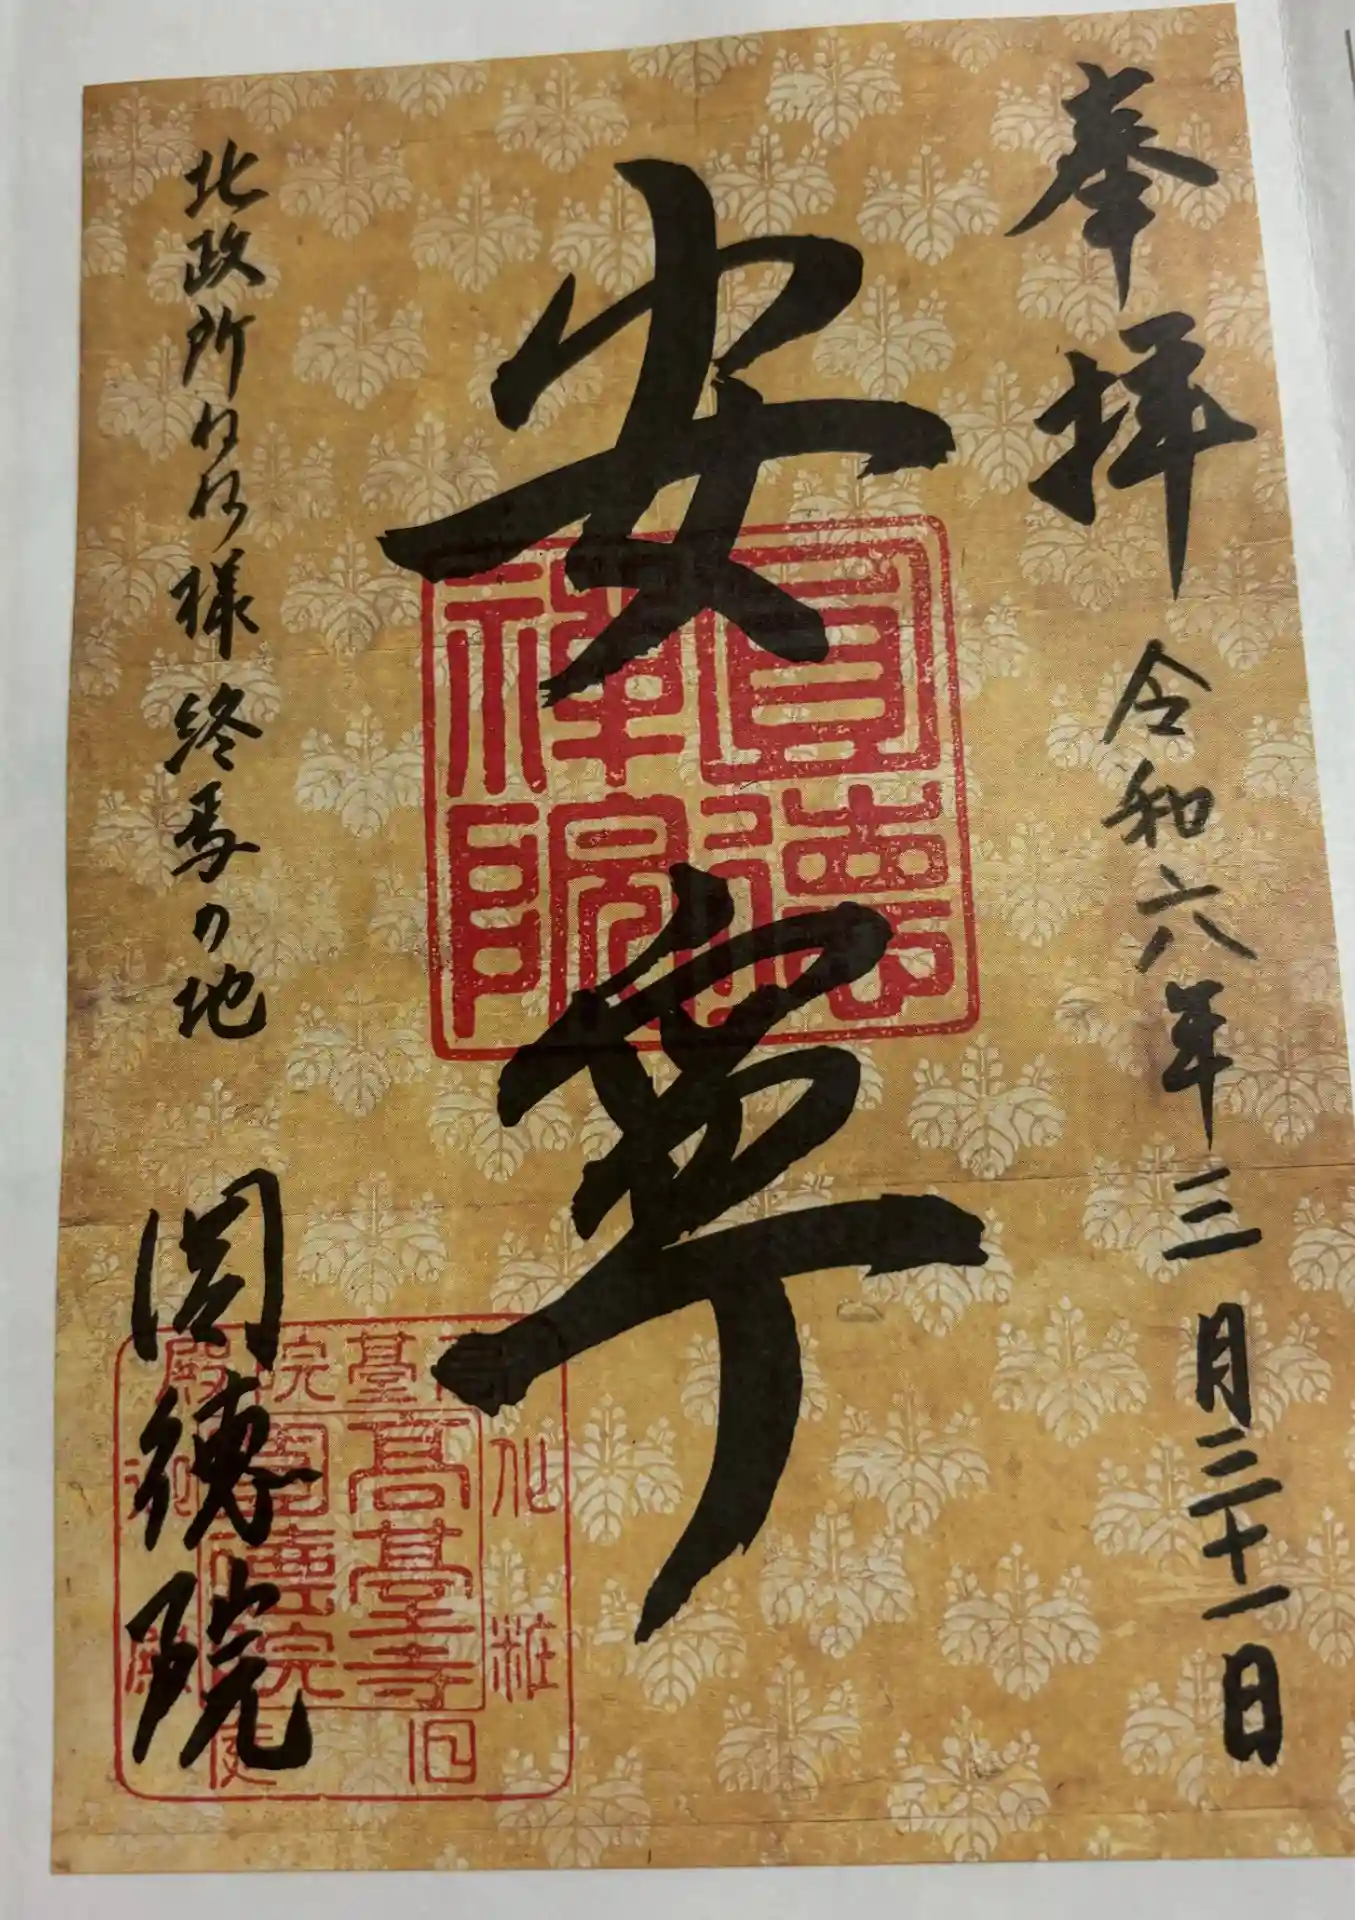 奉拝
令和六年三月三十一日
安寧
圓徳禅院
北政所ねね様終焉の地
圓徳院
高臺寺
圓德院